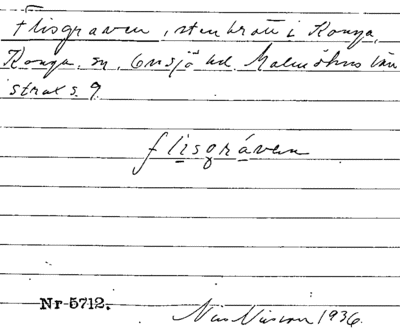 Flisgraven, stenbrott i Konga,
Konga sn, Onsjö hd. Malmöhus län
strax s. 9.
flisgráven
Nr 5712.
Nils Nilsson 1936.